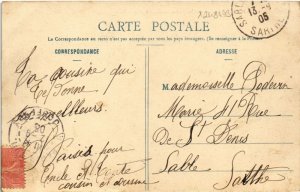 CARTE POSTALE
La Correspondance au recto n'est pas acceptée par tous les pays étrangers. (Se renseigner à la Poste)
CORRESPONDANCE
ADRESSE
La cousine qui
te donne
meilleurs
Baisés pour
Oncle et Tante
cousin et cousine
Mademoiselle
Marie
Rue
De St Denis
Sable
Sarthe
SARTHE
05